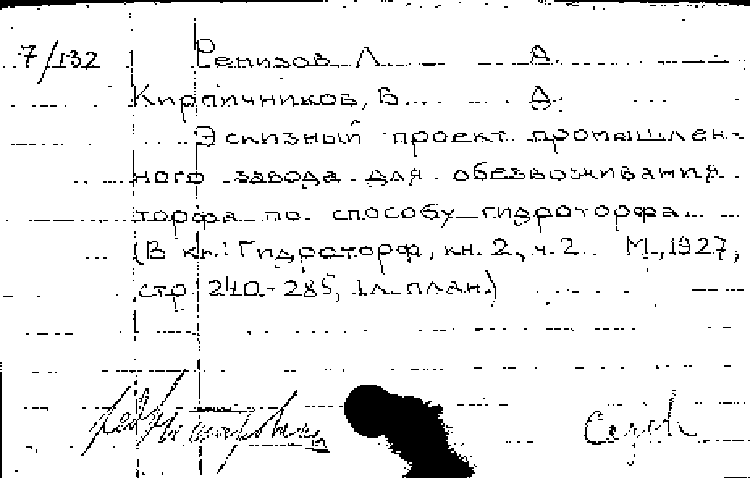 7/132 Ремизов Л. А.
Кирпичников, В. А.
Эскизный проект промышлен-
ного завода для обезвоживания
торфа по способу гидроторфа.
(В кн.: Гидроторф, кн. 2, ч. 2. М., 1927,
стр. 240-285, 1 л. план.)